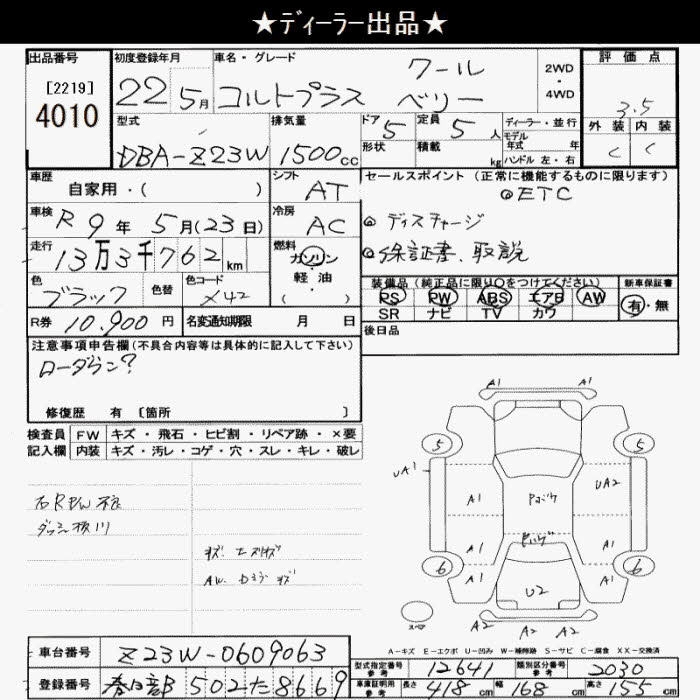 ★ディーラー出品★
出品番号
[2219]
4010
初度登録年月
22 5月
車名・グレード
クール
コルトプラス ベリー
2WD
・
4WD
評価点
3.5
外装 内装
C C
型式
DBA-Z23W
排気量
1500cc
ドア 5
定員 5人
形状
積載 kg
ディーラー・並行
モデル年式 年
ハンドル 左・右
車歴
自家用・( )
シフト
AT
セールスポイント (正常に機能するものに限ります)
◎ETC
◎ディスチャージ
◎保証書、取説
車検 R9年5月(23日)
冷房
AC
走行
13万3千762km
燃料
ガソリン
軽・油
( )
色
ブラック
色替
色コード
X42
装備品(純正品に限り○をつけてください)
PS PW ABS エアB AW
SR ナビ TV カワ
新車保証書
有・無
R券 10,900円
名変通知期限 月 日
後日品
注意事項申告欄(不具合内容等は具体的に記入して下さい)
ローダウン?
修復歴 有 [箇所 ]
検査員
記入欄
FW キズ・飛石・ヒビ割・リペア跡・×要
内装 キズ・汚レ・コゲ・穴・スレ・キレ・破レ
右R P/W 不良
A1 A1
5 5
UA1
A1
UA2
A1
A1
6 6
A1
A1
U2
A2 A2 A2
スペア
A-キズ E-エクボ U-凹み W-補修跡 S-サビ C-腐食 XX-交換済
車台番号
Z23W-0609063
登録番号
春日部 502 た 8669
型式指定番号
参考
12641
類別区分番号
参考
2030
車庫証明用
参考
長さ 418cm 幅 168cm 高さ 155cm